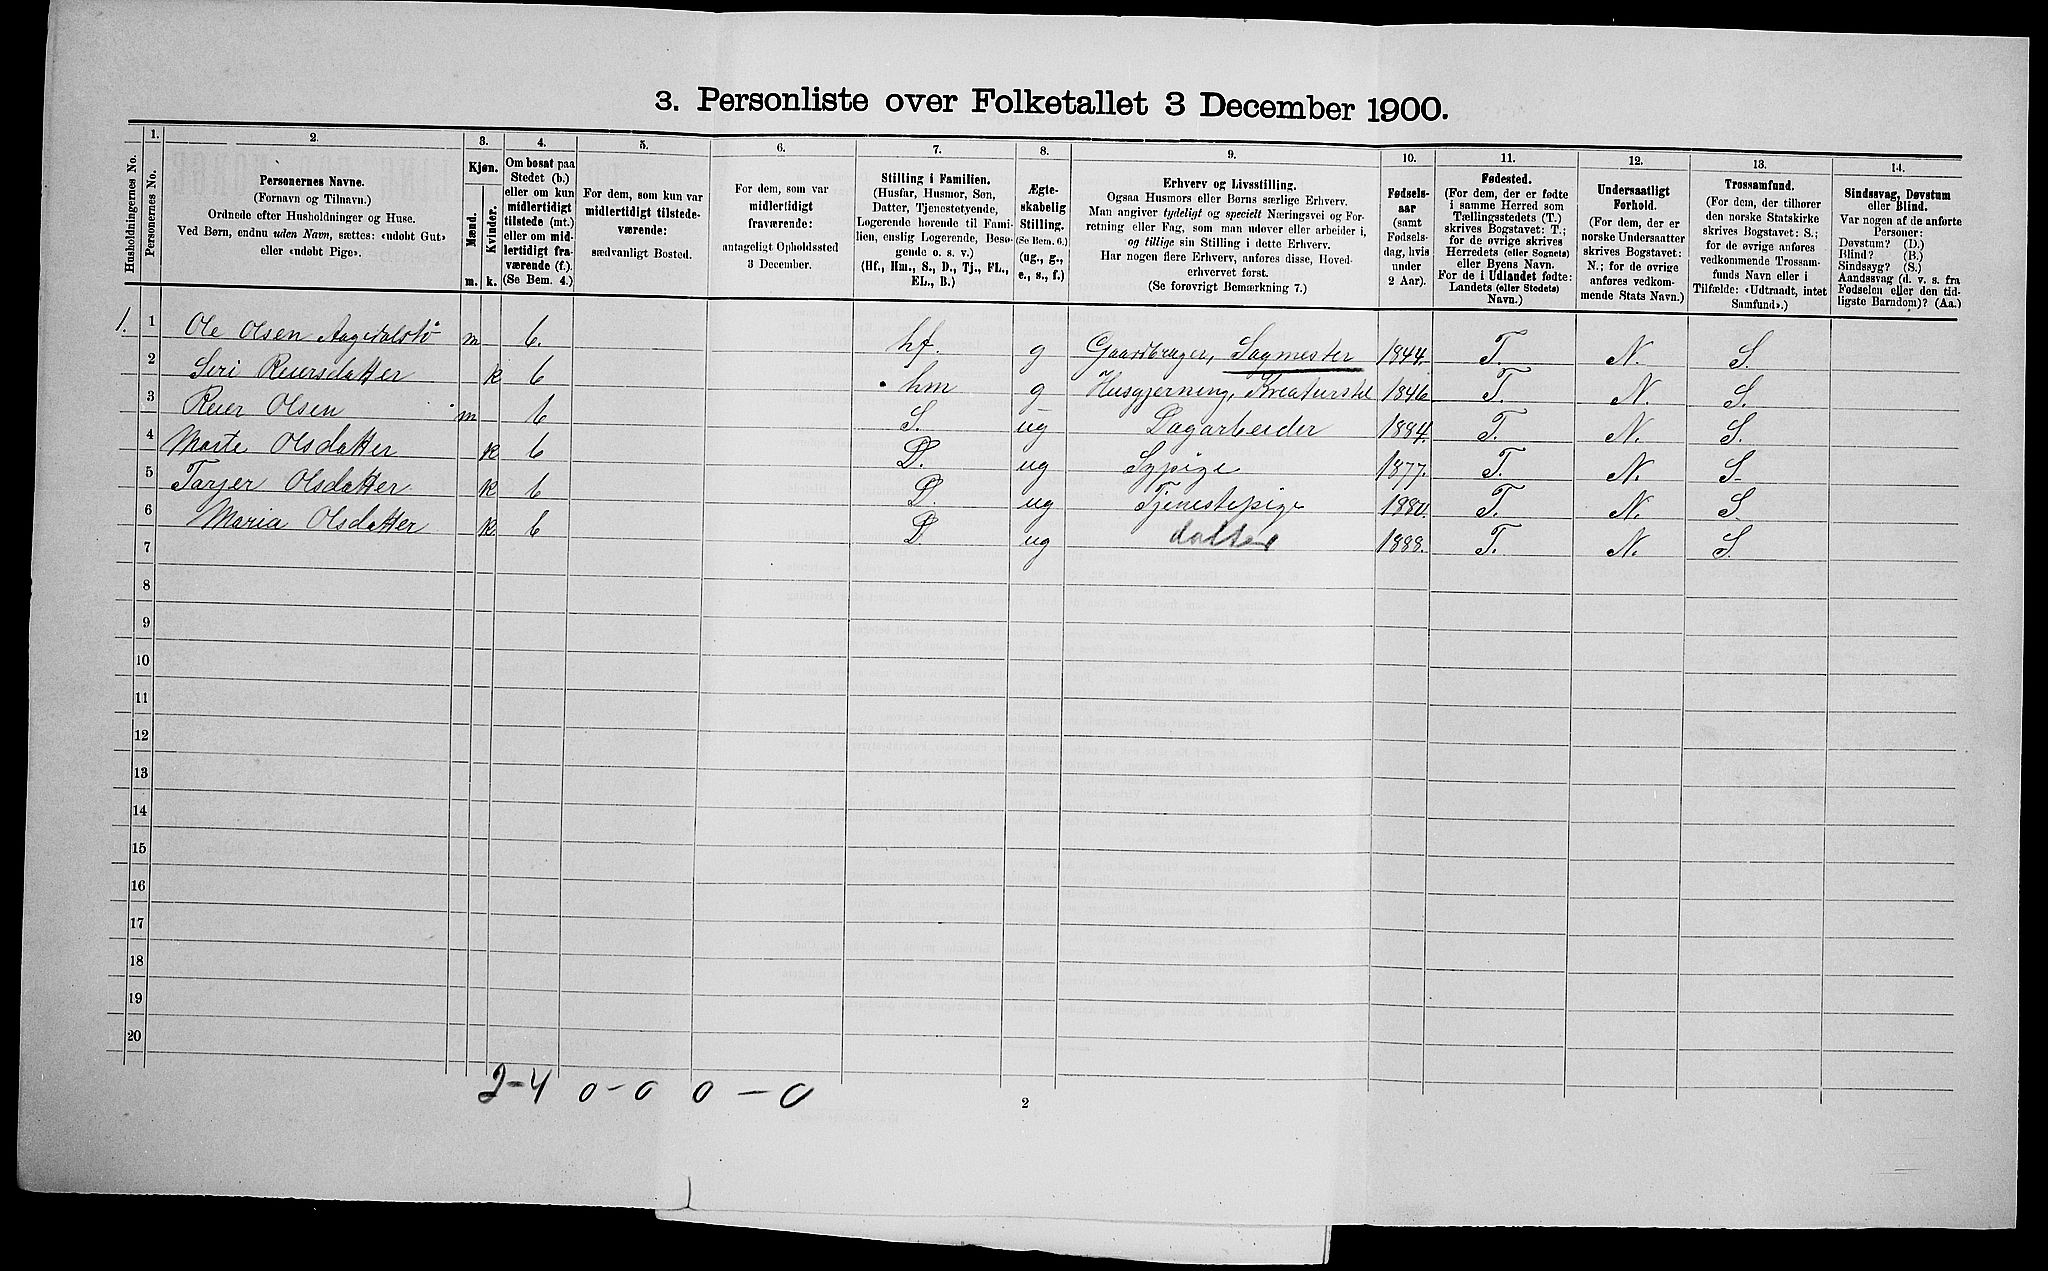 3. Personliste over Folketallet 3 December 1900.
Husholdningernes No.
1.
Personernes No.
2.
Personernes Navne.
(Fornavn og Tilnavn.)
Ordnede efter Husholdninger og Huse.
Ved Børn, endnu uden Navn, sættes: «udøbt Gut»
eller «udøbt Pige».
3.
Kjøn.
Mænd.
Kvinder.
m. k.
4.
Om bosat paa
Stedet (b.)
eller om kun
midlertidigt
tilstede (mt.)
eller om mid-
lertidigt fra-
værende (f.).
(Se Bem. 4.)
5.
For dem, som kun var
midlertidigt tilstede-
værende:
sædvanligt Bosted.
6.
For dem, som var
midlertidigt
fraværende:
antageligt Opholdssted
3 December.
7.
Stilling i Familien.
(Husfar, Husmor, Søn,
Datter, Tjenestetyende,
Logerende hørende til Fami-
lien, enslig Logerende, Besø-
gende o. s. v.)
(Hf., Hm., S., D., Tj., FL.,
EL., B.)
8.
Ægte-
skabelig
Stilling.
(Se Bem. 6.)
(ug., g.,
e., s., f.)
9.
Erhverv og Livsstilling.
Ogsaa Husmors eller Børns særlige Erhverv.
Man angiver tydeligt og specielt Næringsvei og For-
retning eller Fag, som man udøver eller arbeider i,
og tillige sin Stilling i dette Erhverv.
Har nogen flere Erhverv, anføres disse, Hoved-
erhvervet først.
(Se forøvrigt Bemærkning 7.)
10.
Fødsels-
aar
(samt
Fødsels-
dag, hvis
under
2 Aar).
11.
Fødested.
(For dem, der er fødte
i samme Herred som
Tællingsstedets (T.)
skrives Bogstavet: T.;
for de øvrige skrives
Herredets (eller Sognets)
eller Byens Navn.
For de i Udlandet fødte:
Landets (eller Stedets)
Navn.)
12.
Undersaatligt
Forhold.
(For dem, der er
norske Undersaatter
skrives Bogstavet:
N.; for de øvrige
anføres vedkom-
mende Stats Navn.)
13.
Trossamfund.
(For dem, der tilhører
den norske Statskirke
skrives Bogstavet: S.;
for de øvrige anføres
vedkommende Trossam-
funds Navn eller i
Tilfælde: «Udtraadt, intet
Samfund».)
14.
Sindssvag, Døvstum
eller Blind.
Var nogen af de anførte
Personer:
Døvstum? (D.)
Blind? (B.)
Sindssyg? (S.)
Aandssvag (d. v. s. fra
Fødselen eller den tid-
ligste Barndom)? (Aa.)
1. 1 Ole Olsen m 6. hf. g Gaardbruger, Sagmester 1844. T. N. S.
2 Siri Reiersdatter k 6 hm g Husgjerning, Kreaturstel 1846 T. N. S.
3 Reier Olsen m 6 S. ug Dagarbeider 1884. T. N. S.
4 Marte Olsdatter k 6 D. ug Sypige 1877. T. N. S
5 Tarjer Olsdatter k 6 D. ug Tjenestepige 1880. T. N. S
6 Maria Olsdatter k 6 D. ug datter 1888. T. N. S.
7
8
9
10
11
12
13
14
15
16
17
18
19
20
2-4 0-0 0-0
2